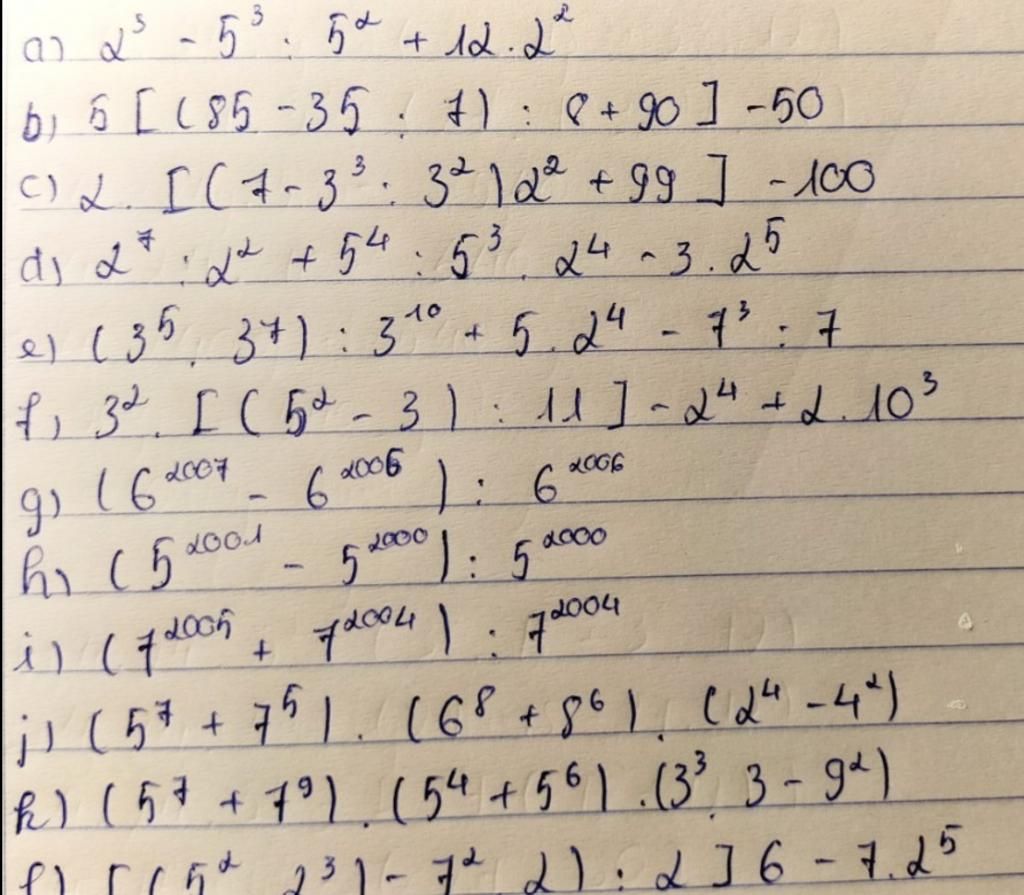 a) 2³ - 5³ : 5² + 12 . 2²
b) 5 [ (85 - 35 : 7) : 8 + 90 ] - 50
c) 2 . [ ( 7 - 3³ : 3² ) 2² + 99 ] - 100
d) 2⁷ : 2² + 5⁴ : 5³ . 2⁴ - 3 . 2⁵
e) (3⁵ . 3⁷) : 3¹⁰ + 5 . 2⁴ - 7³ : 7
f) 3² . [ ( 5² - 3 ) : 11 ] - 2⁴ + 2 . 10³
g) (6²⁰⁰⁷ - 6²⁰⁰⁶ ) : 6²⁰⁰⁶
h) (5²⁰⁰¹ - 5²⁰⁰⁰ ) : 5²⁰⁰⁰
i) (7²⁰⁰⁵ + 7²⁰⁰⁴ ) : 7²⁰⁰⁴
j) (5⁷ + 7⁵ ) . (6⁸ + 8⁶ ) . (2⁴ - 4²)
k) (5⁷ + 7⁹) . (5⁴ + 5⁶) . (3³ 3 - 9²)
l) [ (5² 2³ ) - 7² 2 ) : 2 ] 6 - 7 . 2⁵